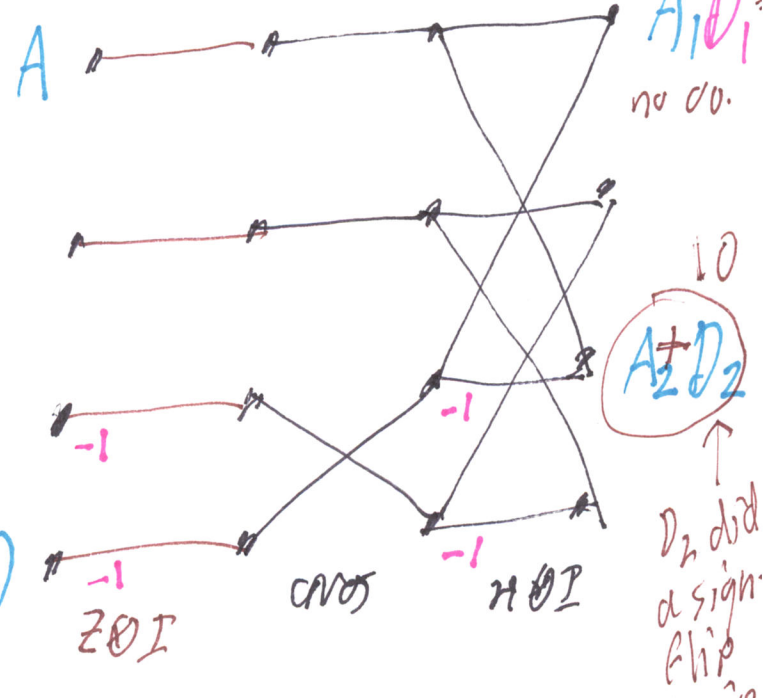 A
A₁D₁
no do.
10
A₂ + D₂
-1
-1
-1
-1
D
Z⊗I
CNOT
H⊗I
D₂ did
a sign
flip